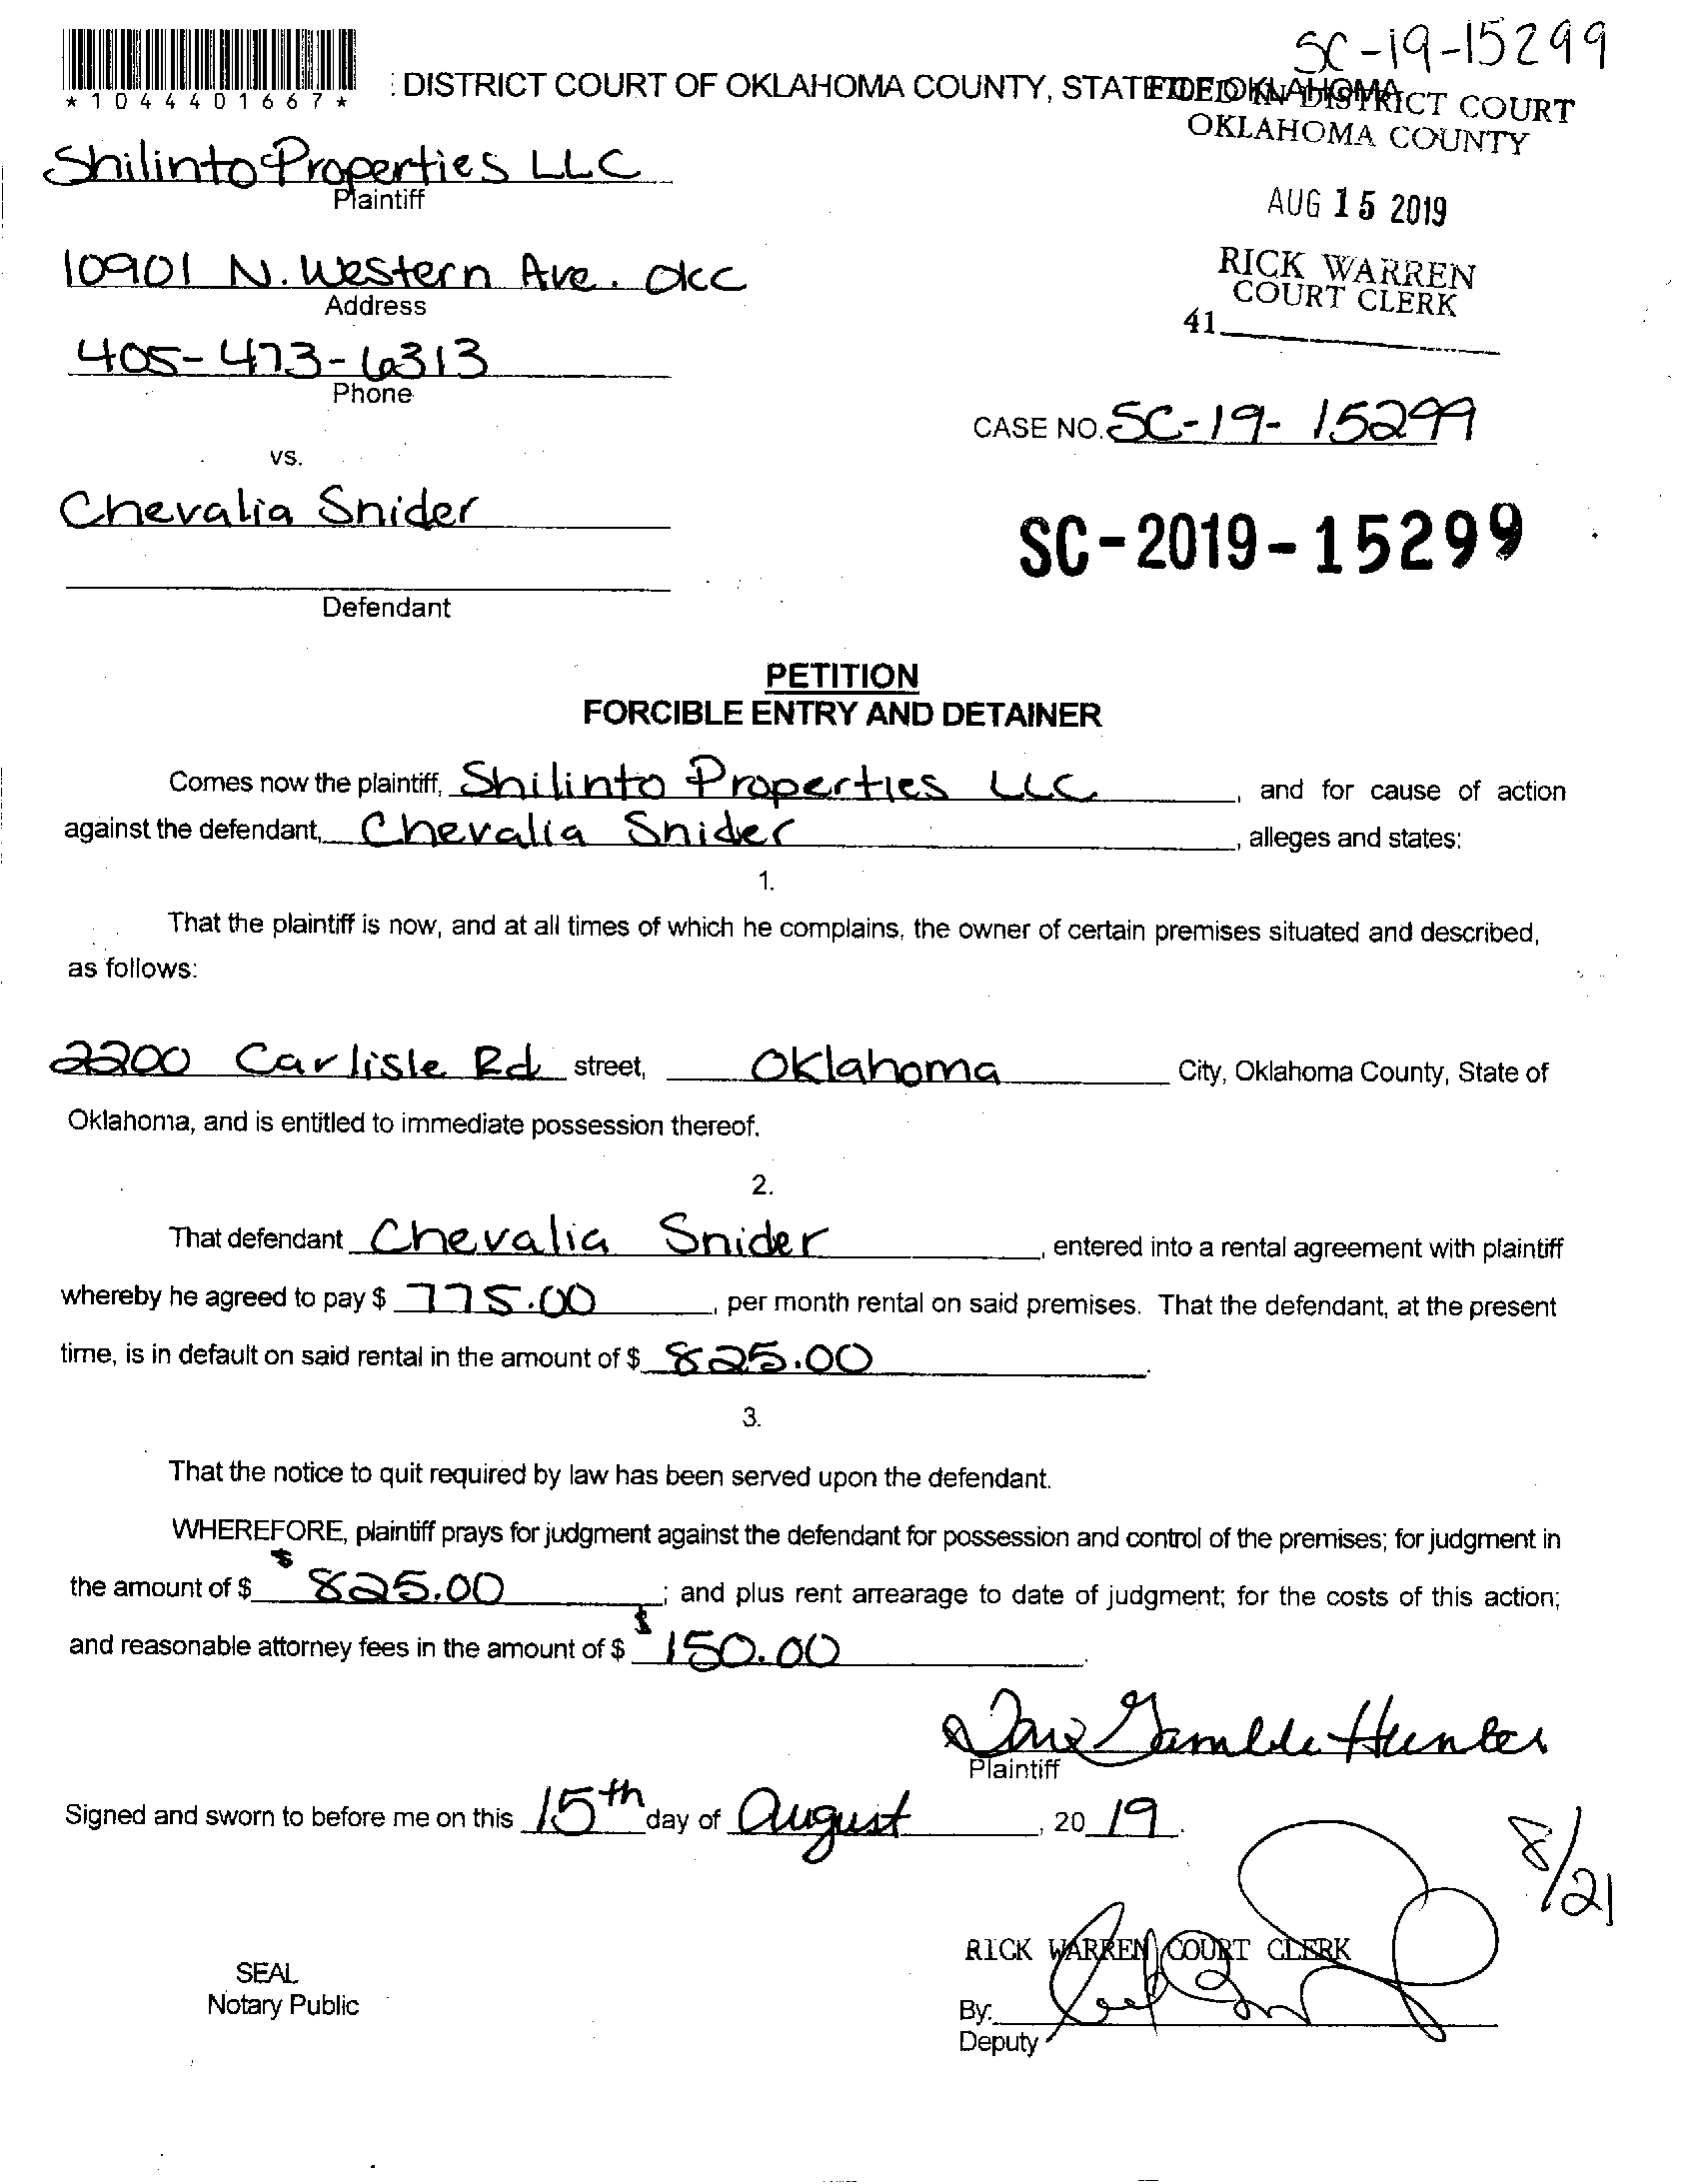 SC-19-15299
*1044401667*
: DISTRICT COURT OF OKLAHOMA COUNTY, STATE OF OKLAHOMA
FILED IN DISTRICT COURT
OKLAHOMA COUNTY
Shilinto Properties LLC
Plaintiff
AUG 15 2019
10901 N. Western Ave. OKC
Address
RICK WARREN
COURT CLERK
41
405-473-6313
Phone
CASE NO. SC-19-15299
vs.
Chevalia Snider
SC-2019-15299
Defendant
PETITION
FORCIBLE ENTRY AND DETAINER
Comes now the plaintiff, Shilinto Properties LLC, and for cause of action
against the defendant, Chevalia Snider, alleges and states:
1.
That the plaintiff is now, and at all times of which he complains, the owner of certain premises situated and described,
as follows:
2200 Carlisle Rd street, Oklahoma City, Oklahoma County, State of
Oklahoma, and is entitled to immediate possession thereof.
2.
That defendant Chevalia Snider, entered into a rental agreement with plaintiff
whereby he agreed to pay $ 775.00, per month rental on said premises. That the defendant, at the present
time, is in default on said rental in the amount of $ 825.00.
3.
That the notice to quit required by law has been served upon the defendant.
WHEREFORE, plaintiff prays for judgment against the defendant for possession and control of the premises; for judgment in
the amount of $ $825.00; and plus rent arrearage to date of judgment; for the costs of this action;
and reasonable attorney fees in the amount of $ $150.00.
Gamble Hunter
Plaintiff
Signed and sworn to before me on this 15th day of August, 20 19.
8/21
RICK WARREN COURT CLERK
SEAL
Notary Public
By:
Deputy